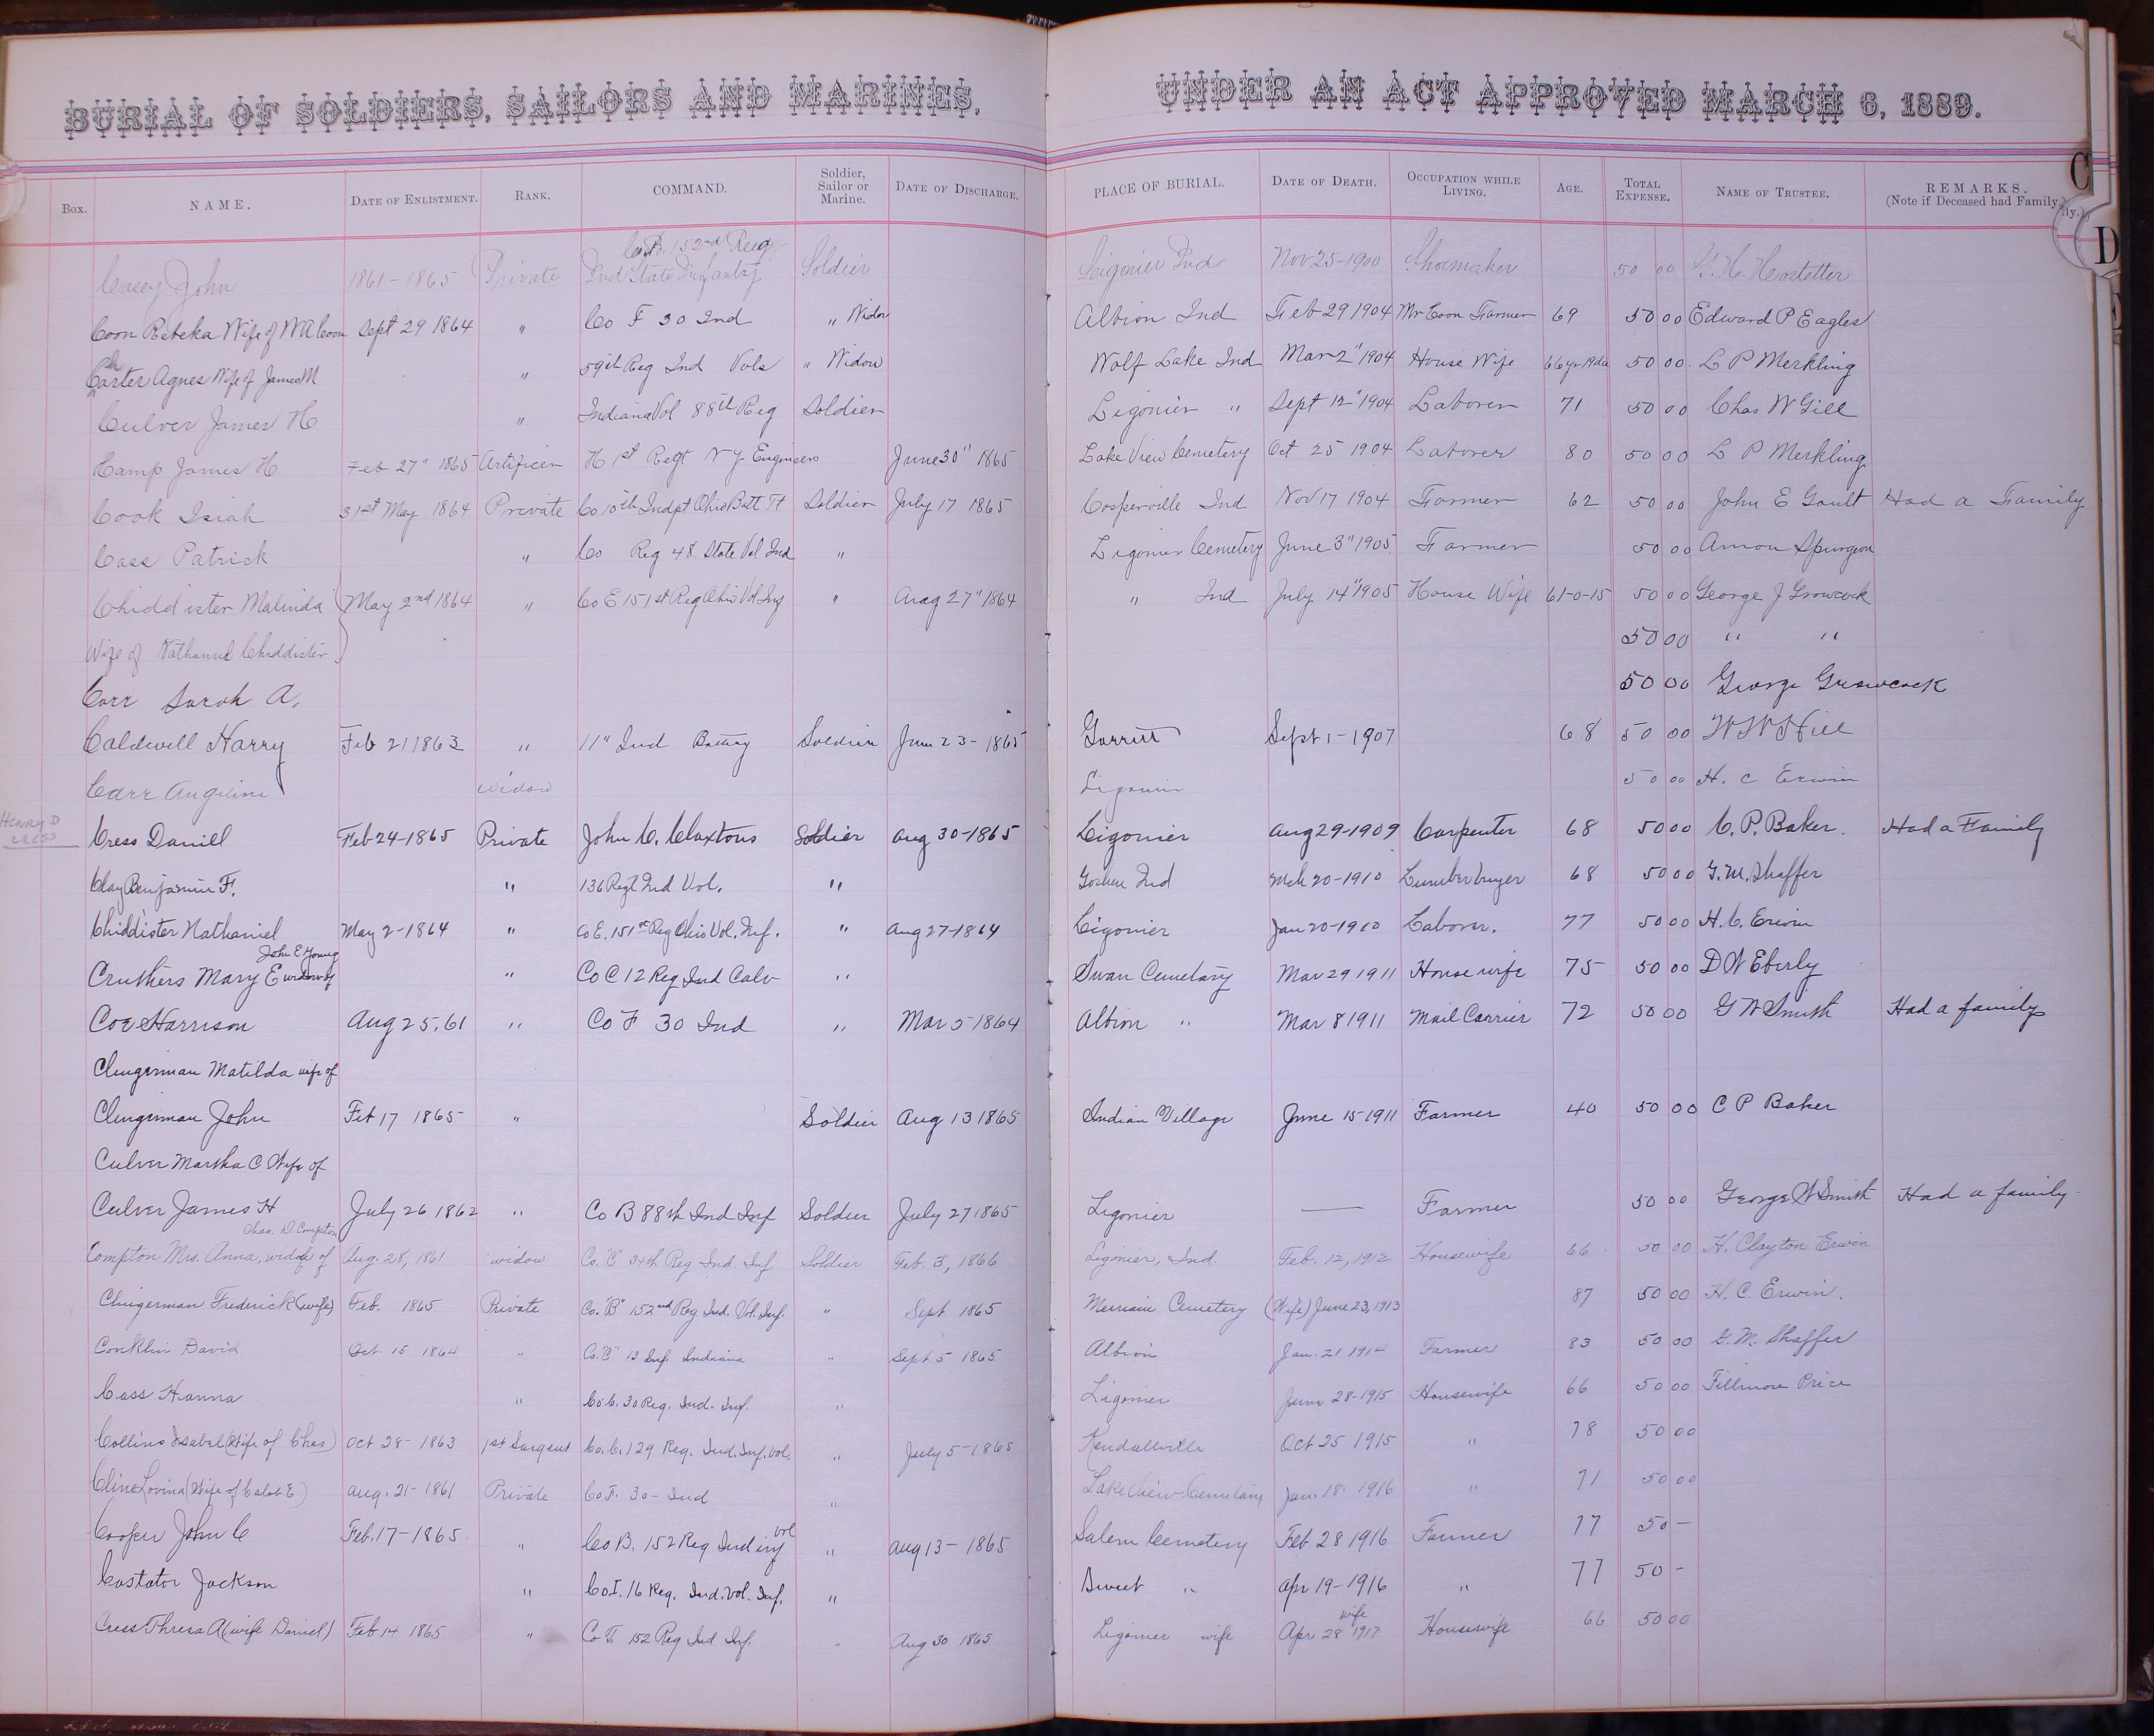 BURIAL OF SOLDIERS, SAILORS AND MARINES, UNDER AN ACT APPROVED MARCH 6, 1889.
Box. NAME. DATE OF ENLISTMENT. RANK. COMMAND. Soldier, Sailor or Marine. DATE OF DISCHARGE. PLACE OF BURIAL. DATE OF DEATH. OCCUPATION WHILE LIVING. AGE. TOTAL EXPENSE. NAME OF TRUSTEE. REMARKS. (Note if Deceased had Family.) C
D
Co. B. 152nd Reig
Casey John 1861-1865 Private Ind State Infantry Soldier Ligonier Ind Nov 25-1900 Shoemaker 50 00 Hostetter
Coon Rebeka Wife of W A Coon Sept 29 1864 " Co F 30 Ind " Widow Albion Ind Feb 29 1904 Mr Coon Farmer 69 50 00 Edward P Eagles
Carter Agnes Wife of James M " 59th Reg Ind Vols " Widow Wolf Lake Ind Mar 2" 1904 House Wife 66 yr 50 00 L P Merkling
Culver James H " Indiana Vol 88th Reg Soldier Ligonier " Sept 12" 1904 Laborer 71 50 00 Chas W Gill
Hamp James H Feb 27" 1865 Artificer H 1st Regt N Y Engineers June 30" 1865 Lake View Cemetery Oct 25 1904 Laborer 80 50 00 L P Merkling
Cook Isiah 31st May 1864 Private Co 10th Indpt Ohio Batt Soldier July 17 1865 Cosperville Ind Nov 17 1904 Farmer 62 50 00 John E Gault Had a Family
Cass Patrick " Co Reg 48. State Vol Ind " Ligonier Cemetery June 3" 1905 Farmer 50 00 Amon Spurgeon
Chiddister Malinda May 2nd 1864 " Co E 151st Reg Ohio Vol Inf " Aug 27" 1864 " Ind July 14" 1905 House Wife 61-0-15 50 00 George J Growcock
Wife of Nathaniel Chiddister 50 00 " "
Carr Sarah A. 50 00 George Growcock
Caldwell Harry Feb 21 1863 " 11" Ind Battery Soldier June 23-1865 Garrett Sept 1-1907 68 50 00 W W Hill
Carr Angeline widow Ligonier 50 00 H. C Erwin
HENRY D
CRESS
Cress Daniel Feb 24-1865 Private John C. Claxtons Soldier Aug 30-1865 Ligonier Aug 29-1909 Carpenter 68 50 00 C. P. Baker. Had a Family
Clay Benjamin F. " 136 Regt Ind Vol. " Goshen Ind Mch 20-1910 Lumber buyer 68 50 00 G. M. Shaffer
Chiddister Nathaniel May 2-1864 " Co E. 151st Reg Ohio Vol. Inf. " Aug 27-1864 Ligonier Jan 20-1910 Laborer. 77 50 00 H. C. Erwin
John E Young
Cruthers Mary E widow of " Co C 12 Reg Ind Calv " Swan Cemetary Mar 29 1911 House wife 75 50 00 D W Eberly
Coe Harrison Aug 25, 61 " Co F 30 Ind " Mar 5 1864 Albion " Mar 8 1911 Mail Carrier 72 50 00 G W Smith Had a family
Clingerman Matilda wife of
Clingerman John Feb 17 1865 " Soldier Aug 13 1865 Indian Village June 15-1911 Farmer 40 50 00 C P Baker
Culver Martha C Wife of
Culver James H July 26 1862 " Co B 88th Ind Inf Soldier July 27 1865 Ligonier — Farmer 50 00 George W Smith Had a family
Chas. D. Compton
Compton Mrs. Anna, widow of Aug. 28, 1861 widow Co. "C" 34th Reg Ind. Inf Soldier Feb. 3, 1866 Ligonier, Ind. Feb. 12, 1912 Housewife 66 50 00 H. Clayton Erwin
Clingerman Frederick (wife) Feb. 1865 Private Co. "B" 152nd Reg Ind. Vol. Inf. " Sept 1865 Merriam Cemetery (Wife) June 23, 1913 87 50 00 H. C. Erwin.
Conklin David Oct. 15 1864 " Co. "C" 13 Inf. Indiana " Sept 5 1865 Albion Jan. 21 1914 Farmer 83 50 00 G. M. Shaffer
Cass Hanna " Co. C. 30 Reg. Ind. Inf. " Ligonier June 28-1915 Housewife 66 50 00 Fillmore Price
Collins Isabel (Wife of Chas) Oct 28-1863 1st Sargent Co. C. 129 Reg. Ind. Inf. Vol. " July 5-1865 Kendallville Oct 25 1915 " 78 50 00
Cline Lovina (Wife of Calob E) Aug. 21-1861 Private Co F. 30-Ind " Lake View Cemetary Jan. 18. 1916 " 71 50 00
Cooper John C Feb. 17-1865. " Co B. 152 Reg Ind inf vol " Aug 13-1865 Salem Cemetery Feb 28 1916 Farmer 77 50 —
Castator Jackson " Co I. 16 Reg. Ind. Vol. Inf. " Sweet " Apr 19-1916 " 77 50 -
Cress Thresa A (wife Daniel) Feb 14 1865 " Co F. 152 Reg Ind Inf. " Aug 30 1865 Ligonier wife Apr 28 wife 1917 Housewife 66 50 00